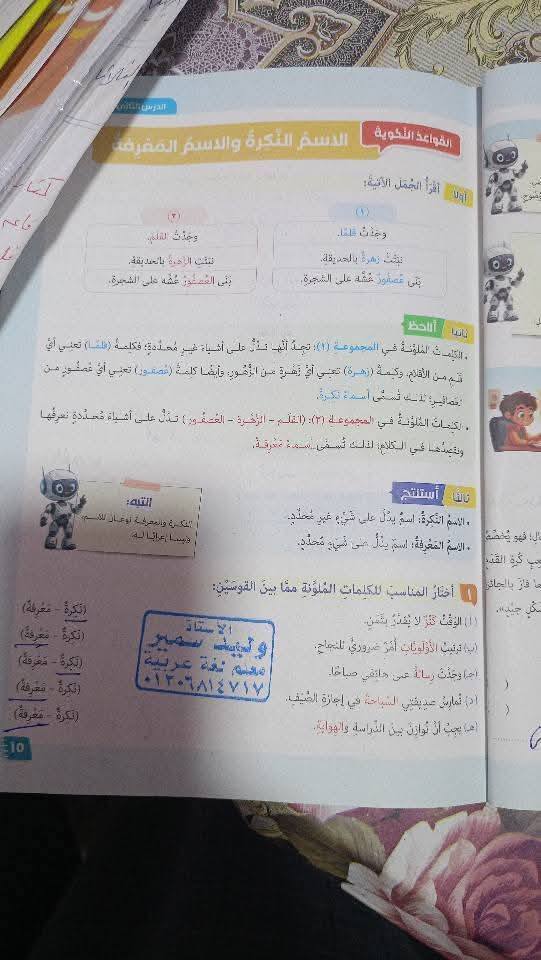 الدرس الثاني
القواعد النحوية
الاسمُ النَّكِرةُ والاسمُ المَعْرِفةُ
أولًا أقرأُ الجُمَلَ الآتيةَ:
(١)
وجَدْتُ قلمًا.
نبَتَتْ زهرةٌ بالحديقةِ.
بَنَى عُصفورٌ عُشَّه على الشجرةِ.
(٢)
وجَدْتُ القلمَ.
نبَتَتِ الزهرةُ بالحديقةِ.
بَنَى العُصفورُ عُشَّه على الشجرةِ.
ثانيًا ألاحظ
• الكلِماتُ المُلوَّنةُ في المجموعةِ (١): تجِدُ أنَّها تدُلُّ على أشياءَ غيرِ مُحدَّدةٍ؛ فكلِمةُ (قلمًا) تعني أيَّ
قلمٍ من الأقلامِ، وكلمةُ (زهرة) تعني أيَّ زَهرةٍ من الزُّهورِ، وأيضًا كلمةُ (عصفور) تعني أيَّ عُصفورٍ من
العصافيرِ؛ لذلك تُسمَّى أسماءً نَكِرةً.
• الكلِماتُ المُلوَّنةُ في المجموعةِ (٢): (القلم – الزَّهرة – العُصفور) تدُلُّ على أشياءَ مُحدَّدةٍ نعرِفُها
ونقصِدُها في الكلامِ؛ لذلك تُسمَّى أسماءَ مَعْرِفةٍ.
ثالثًا أستنتج
• الاسمُ النَّكِرةُ: اسمٌ يدُلُّ على شَيْءٍ غيرِ مُحدَّدٍ.
• الاسمُ المَعْرِفةُ: اسمٌ يدُلُّ على شَيْءٍ مُحدَّدٍ.
انتبه:
النكرة والمعرفة نوعان للاسم،
وليسا إعرابًا له.
١ أختارُ المناسبَ للكلِماتِ المُلوَّنةِ ممَّا بينَ القوسَيْنِ:
(أ) الوَقْتُ كَنْزٌ لا يُقدَّرُ بثَمَنٍ. (نَكِرةٌ – مَعْرِفةٌ)
(ب) ترتيبُ الأولَوِيَّاتِ أَمْرٌ ضروريٌّ للنجاحِ. (نَكِرةٌ – مَعْرِفةٌ)
(ج) وجَدْتُ رسالةً على هاتفي صباحًا. (نَكِرةٌ – مَعْرِفةٌ)
(د) تُمارِسُ صديقتي السِّباحةَ في إجازةِ الصَّيْفِ. (نَكِرةٌ – مَعْرِفةٌ)
(هـ) يَجِبُ أنْ نُوازِنَ بينَ الدِّراسةِ والهِوايةِ. (نَكِرةٌ – مَعْرِفةٌ)
الأستاذ
وليد سمير
معلم لغة عربية
٠١٢٠٦٨١٤٧١٧
10